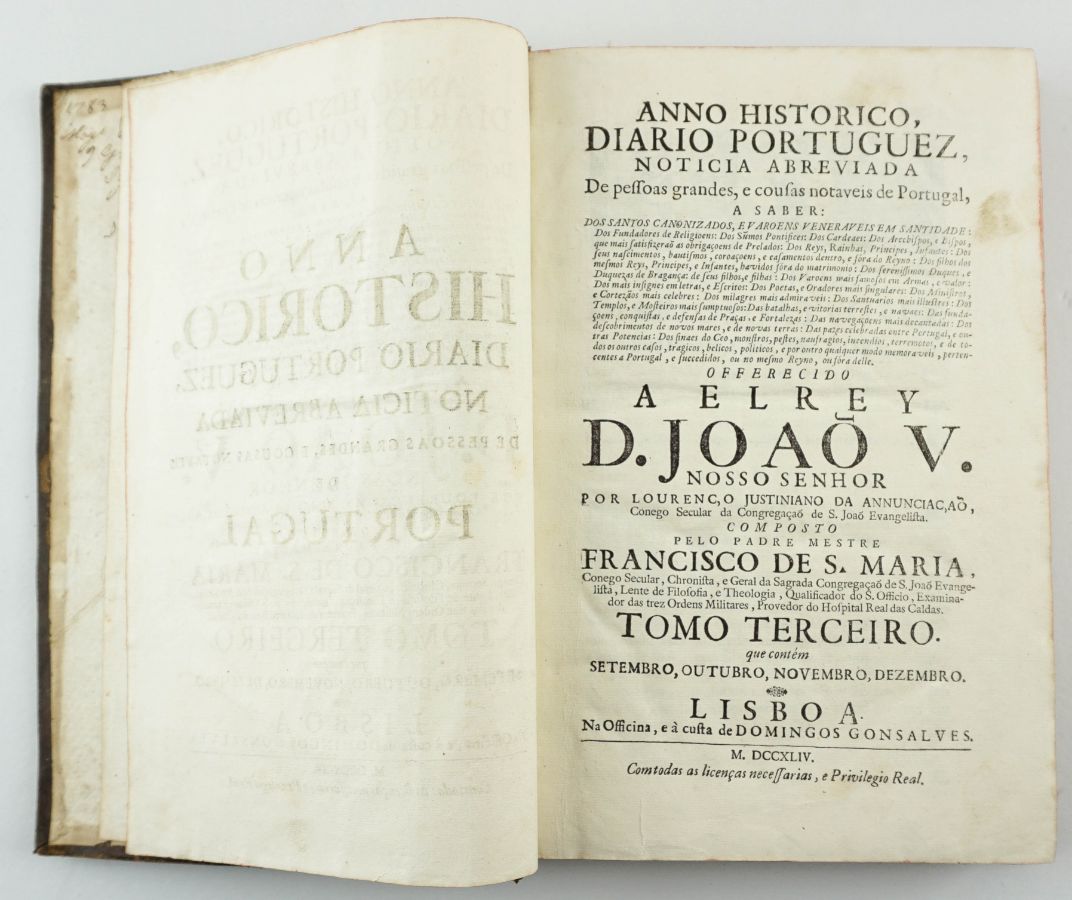 1783
ANNO HISTORICO,
DIARIO PORTUGUEZ,
NOTICIA ABREVIADA
De peſſoas grandes, e couſas notaveis de Portugal,
A SABER:
DOS SANTOS CANONIZADOS, E VAROENS VENERAVEIS EM SANTIDADE:
Dos Fundadores de Religioens: Dos Sũmos Pontifices: Dos Cardeaes: Dos Arcebiſpos, e Biſpos,
que mais ſatisfizeraõ as obrigaçoens de Prelados: Dos Reys, Rainhas, Principes, Infantes: Dos
ſeus naſcimentos, bautiſmos, coroaçoens, e caſamentos dentro, e fóra do Reyno: Dos filhos dos
meſmos Reys, Principes, e Infantes, havidos fóra do matrimonio: Dos ſereniſſimos Duques, e
Duquezas de Bragança: de ſeus filhos, e filhas: Dos Varoens mais famoſos em Armas, e valor:
Dos mais inſignes em letras, e Eſcritos: Dos Poetas, e Oradores mais ſingulares: Dos Miniſtros,
e Cortezãos mais celebres: Dos milagres mais admiraveis: Dos Santuarios mais illuſtres: Dos
Templos, e Moſteiros mais ſumptuoſos: Das batalhas, e vitorias terreſtes, e navaes: Das funda-
çoens, conquiſtas, e defenſas de Praças, e Fortalezas: Das navegaçoens mais decantadas: Dos
deſcobrimentos de novos mares, e de novas terras: Das pazes celebradas entre Portugal, e ou-
tras Potencias: Dos ſinaes do Ceo, monſtros, peſtes, naufragios, incendios, terremotos, e de to-
dos os outros caſos, tragicos, belicos, politicos, e por outro qualquer modo memoraveis, perten-
centes a Portugal, e ſuccedidos, ou no meſmo Reyno, ou fóra delle.
OFFERECIDO
A ELREY
D. JOAÕ V.
NOSSO SENHOR
POR LOURENC,O JUSTINIANO DA ANNUNCIAC,AÕ,
Conego Secular da Congregaçaõ de S. Joaõ Evangeliſta.
COMPOSTO
PELO PADRE MESTRE
FRANCISCO DE S. MARIA,
Conego Secular, Chroniſta, e Geral da Sagrada Congregaçaõ de S. Joaõ Evange-
liſta, Lente de Filoſofia, e Theologia, Qualificador do S. Officio, Examina-
dor das trez Ordens Militares, Provedor do Hoſpital Real das Caldas.
TOMO TERCEIRO.
que contém
SETEMBRO, OUTUBRO, NOVEMBRO, DEZEMBRO.
LISBOA.
Na Officina, e à cuſta de DOMINGOS GONSALVES.
M. DCCXLIV.
Com todas as licenças neceſſarias, e Privilegio Real.